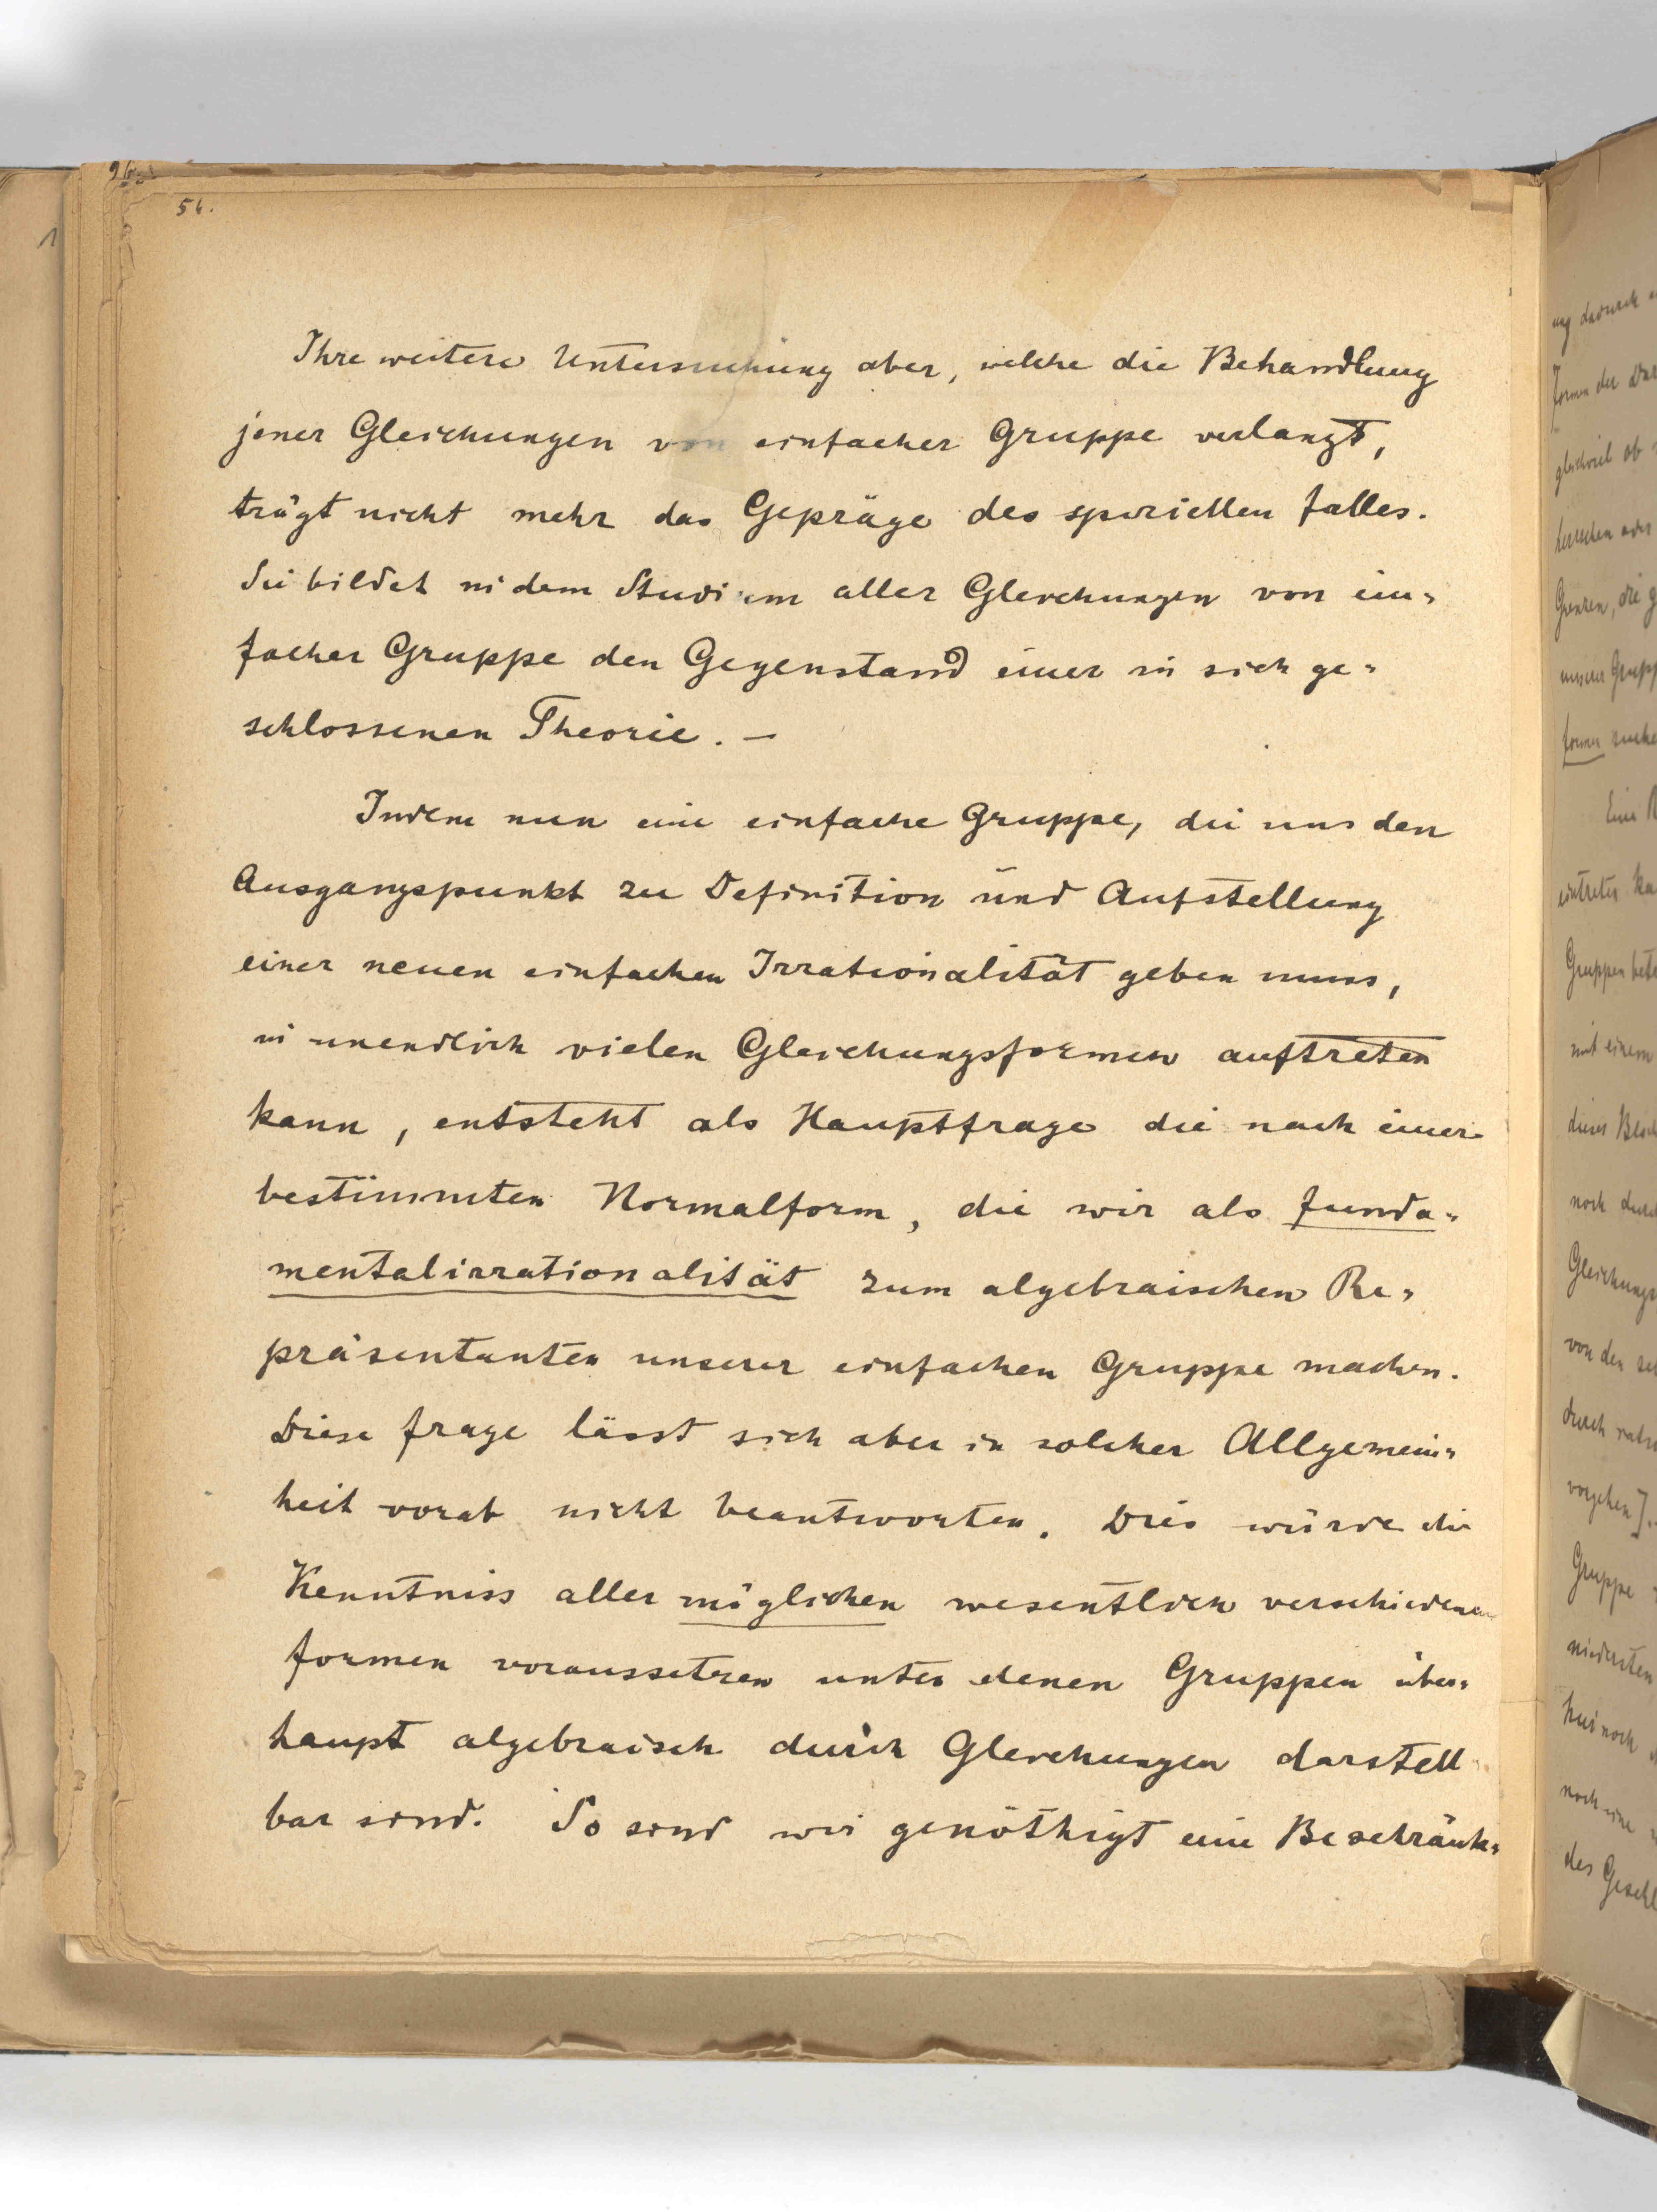 56.
Ihre weitere Untersuchung aber, welche die Behandlung
jener Gleichungen von einfacher Gruppe verlangt,
trägt nicht mehr das Gepräge des speziellen Falles.
Sie bildet in dem Studium aller Gleichungen von ein-
facher Gruppe den Gegenstand einer in sich ge-
schlossenen Theorie. —
Indem nun eine einfache Gruppe, die uns den
Ausgangspunkt zu Definition und Aufstellung
einer neuen einfachen Irrationalität geben muss,
in unendlich vielen Gleichungsformen auftreten
kann, entsteht als Hauptfrage die nach einer
bestimmten Normalform, die wir als Funda-
mentalirrationalität zum algebraischen Re-
präsentanten unserer einfachen Gruppe machen.
Diese Frage lässt sich aber in solcher Allgemein-
heit vorab nicht beantworten. Dies würde die
Kenntniss aller möglichen wesentlich verschiedenen
Formen voraussetzen unter denen Gruppen über-
haupt algebraisch durch Gleichungen darstell
bar sind. So sind wir genöthigt eine Beschränk-